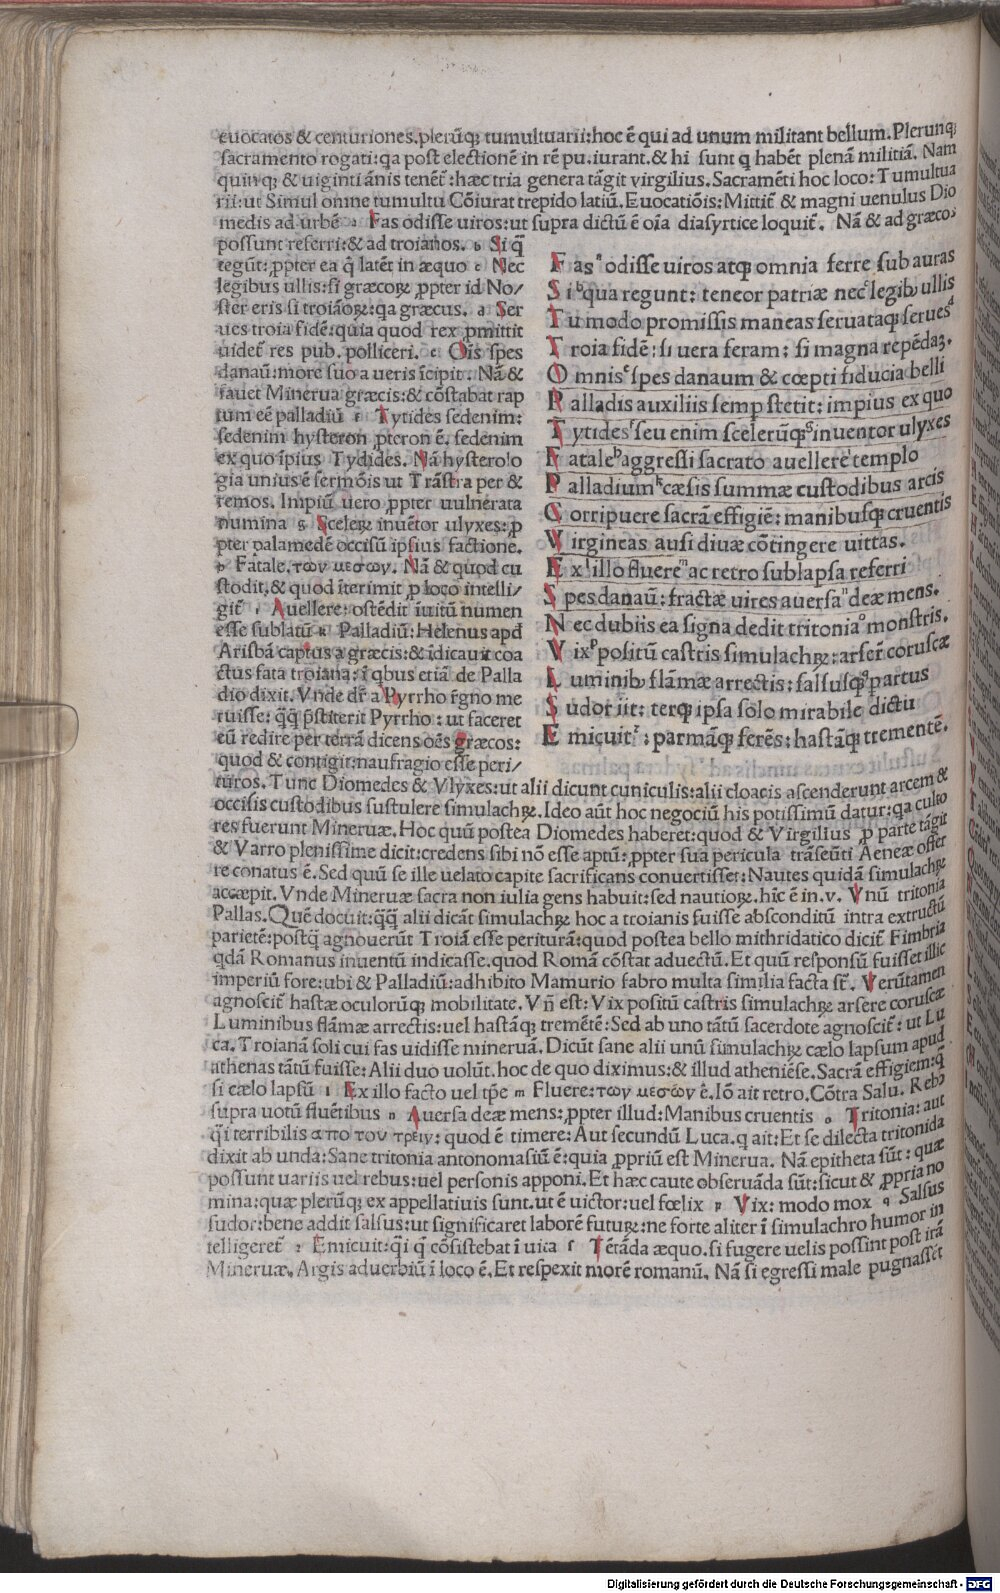 euocatos & centuriones.plerūq; tumultuarii:hoc ē qui ad unum militant bellum.Plerunq;
sacramento rogati:qa post electionē in rē pu.iurant.& hi sunt q habēt plenā militiā. Nam
quinq; & uiginti ānis tenēt̄:hæc tria genera tāgit virgilius.Sacramēti hoc loco:Tumultua
rii:ut Simul omne tumultu Cōiurat trepido latiū.Euocatiōis:Mittit̄ & magni uenulus Dio
medis ad urbē c Fas odisse uiros:ut supra dictū ē oīa diasyrtice loquit̄. Nā & ad græco
possunt referri:& ad troianos. b Si q̄
tegūt:ꝓpter ea q̄ latēt in æquo c Nec
legibus ullis:si græcoꝝ ꝓpter id No/
ster eris si troiāoꝝ:qa græcus. d Ser
ues troia fidē:quia quod rex ꝓmittit
uidet̄ res pub.polliceri. e Oīs spes
danaū:more suo a ueris īcipit. Nā &
fauet Minerua græcis:& cōstabat rap
tum eē palladiū f Tytides sedenim:
sedenim hysteron ꝓteron ē. sedenim
ex quo īpius Tydides. Nā hysterolo
gia unius ē sermōis ut Trāstra per &
remos. Impiū uero ꝓpter uulnerata
numina g Sceleꝝ inuētor ulyxes:ꝓ
pter palamedē occisū ipsius factione.
h Fatale.των μεσων. Nā & quod cu
stodit.& quod īterimit ꝓ loco intelli/
git̄ i Auellere:ostēdit īuitū numen
esse sublatū k Palladiū:Helenus apđ
Arisbā captus a græcis:& īdicauit coa
ctus fata troiana:ī qbus etiā de Palla
dio dixit.Vnde dr̄ a Pyrrho r̄gno me
ruisse: q̄q̄ p̄stiterit Pyrrho : ut faceret
eū redire per terrā dicens oēs græcos:
quod & contigit:naufragio esse peri/
F asᵃ odisse uiros atq; omnia ferre sub auras
S iᵇ qua tegunt: teneor patriæ necᶜ legib; ullis
T u modo promissis maneas seruataq; seruesᵈ
T roia fidē: si uera feram: si magna repēdaʒ.
O mnisᵉ spes danaum & cœpti fiducia belli
P alladis auxiliis semꝑ stetit: impius ex quo
T ytidesᶠ seu enim scelerūq;ᵍ inuentor ulyxes
F ataleʰ aggressi sacrato auellereⁱ templo
P alladiumᵏ cæsis summæ custodibus arcis
C orripuere sacrā effigiē: manibusq; cruentis
V irgineas ausi diuæ cōtingere uittas.
E xˡ illo fluereᵐ ac retro sublapsa referri
S pes danaū: fractæ uires auersaⁿ deæ mens.
N ec dubiis ea signa dedit tritoniaᵒ monstris.
V ixᵖ positū castris simulachꝝ: arser̄ coruscæ
L uminib; flāmæ arrectis: salsusq;ᑫ partus
S udor iit: terq; ipsa solo mirabile dictu
E micuitʳ: parmāq; ferēs: hastāq; trementē.
turos. Tunc Diomedes & Vlyxes:ut alii dicunt cuniculis:alii cloacis ascenderunt arcem &
occisis custodibus sustulere simulachꝝ. Ideo aūt hoc negociū his potissimū datur:qa culto
res fuerunt Mineruæ. Hoc quū postea Diomedes haberet:quod & Virgilius ꝓ parte tāgit
& Varro plenissime dicit:credens sibi nō esse aptū: ꝓpter sua pericula trāseūti Aeneæ offer
re conatus ē.Sed quū se ille uelato capite sacrificans conuertisset:Nautes quidā simulachꝝ
accæpit. Vnde Mineruæ sacra non iulia gens habuit:sed nautioꝝ.hīc ē in.v. Vnū tritonia
Pallas.Quē docuit:q̄q̄ alii dicāt simulachꝝ hoc a troianis fuisse absconditū intra extructū
parietē:postq̄ agnouerūt Troiā esse perituram:quod postea bello mithridatico dicit̄ Fimbria
qdā Romanus inuentū indicasse.quod Romā cōstat aduectū.Et quū responsū fuisset illic
imperiū fore:ubi & Palladiū:adhibito Mamurio fabro multa similia facta st̄. Verūtamen
agnoscit̄ hastæ oculorūq; mobilitate.Vn̄ est:Vix positū castris simulachꝝ arsere coruscæ
Luminibus flāmæ arrectis:uel hastāq; tremētē:Sed ab uno tātū sacerdote agnoscit̄: ut Lu
ca.Troianā soli cui fas uidisse mineruā.Dicūt sane alii unū simulachꝝ cælo lapsum apud
athenas tātū fuisse:Alii duo uolūt.hoc de quo diximus:& illud atheniēse.Sacrā effigiem:q̄
si cælo lapsū l Ex illo facto uel tp̄e m Fluere:των μεσων ē.Iō ait retro.Cōtra Salu. Reb;
supra uotū fluētibus n Auersa deæ mens: ꝓpter illud:Manibus cruentis o Tritonia: aut
q̄i terribilis απο του τρειν: quod ē timere:Aut secundū Luca.q ait:Et se dilecta tritonida
dixit ab unda:Sane tritonia antonomasiū ē:quia ꝓpriū est Minerua. Nā epitheta sūt: quæ
possunt uariis uel rebus:uel personis apponi.Et hæc caute obseruāda sūt:sicut & ꝓpria no
mina:quæ plerūq; ex appellatiuis sunt.ut ē uictor:uel fœlix p Vix: modo mox q Salsus
sudor:bene addit salsus:ut significaret laborē futuꝝ:ne forte aliter ī simulachro humor in
telligeret̄ r Emicuit:q̄i q̄ cōsistebat ī uita s Tētāda æquo.si fugere uelis possint post irā
Mineruæ.Argis aduerbiū ī loco ē.Et respexit morē romanū. Nā si egressi male pugnassēt
Digitalisierung gefördert durch die Deutsche Forschungsgemeinschaft - DFG